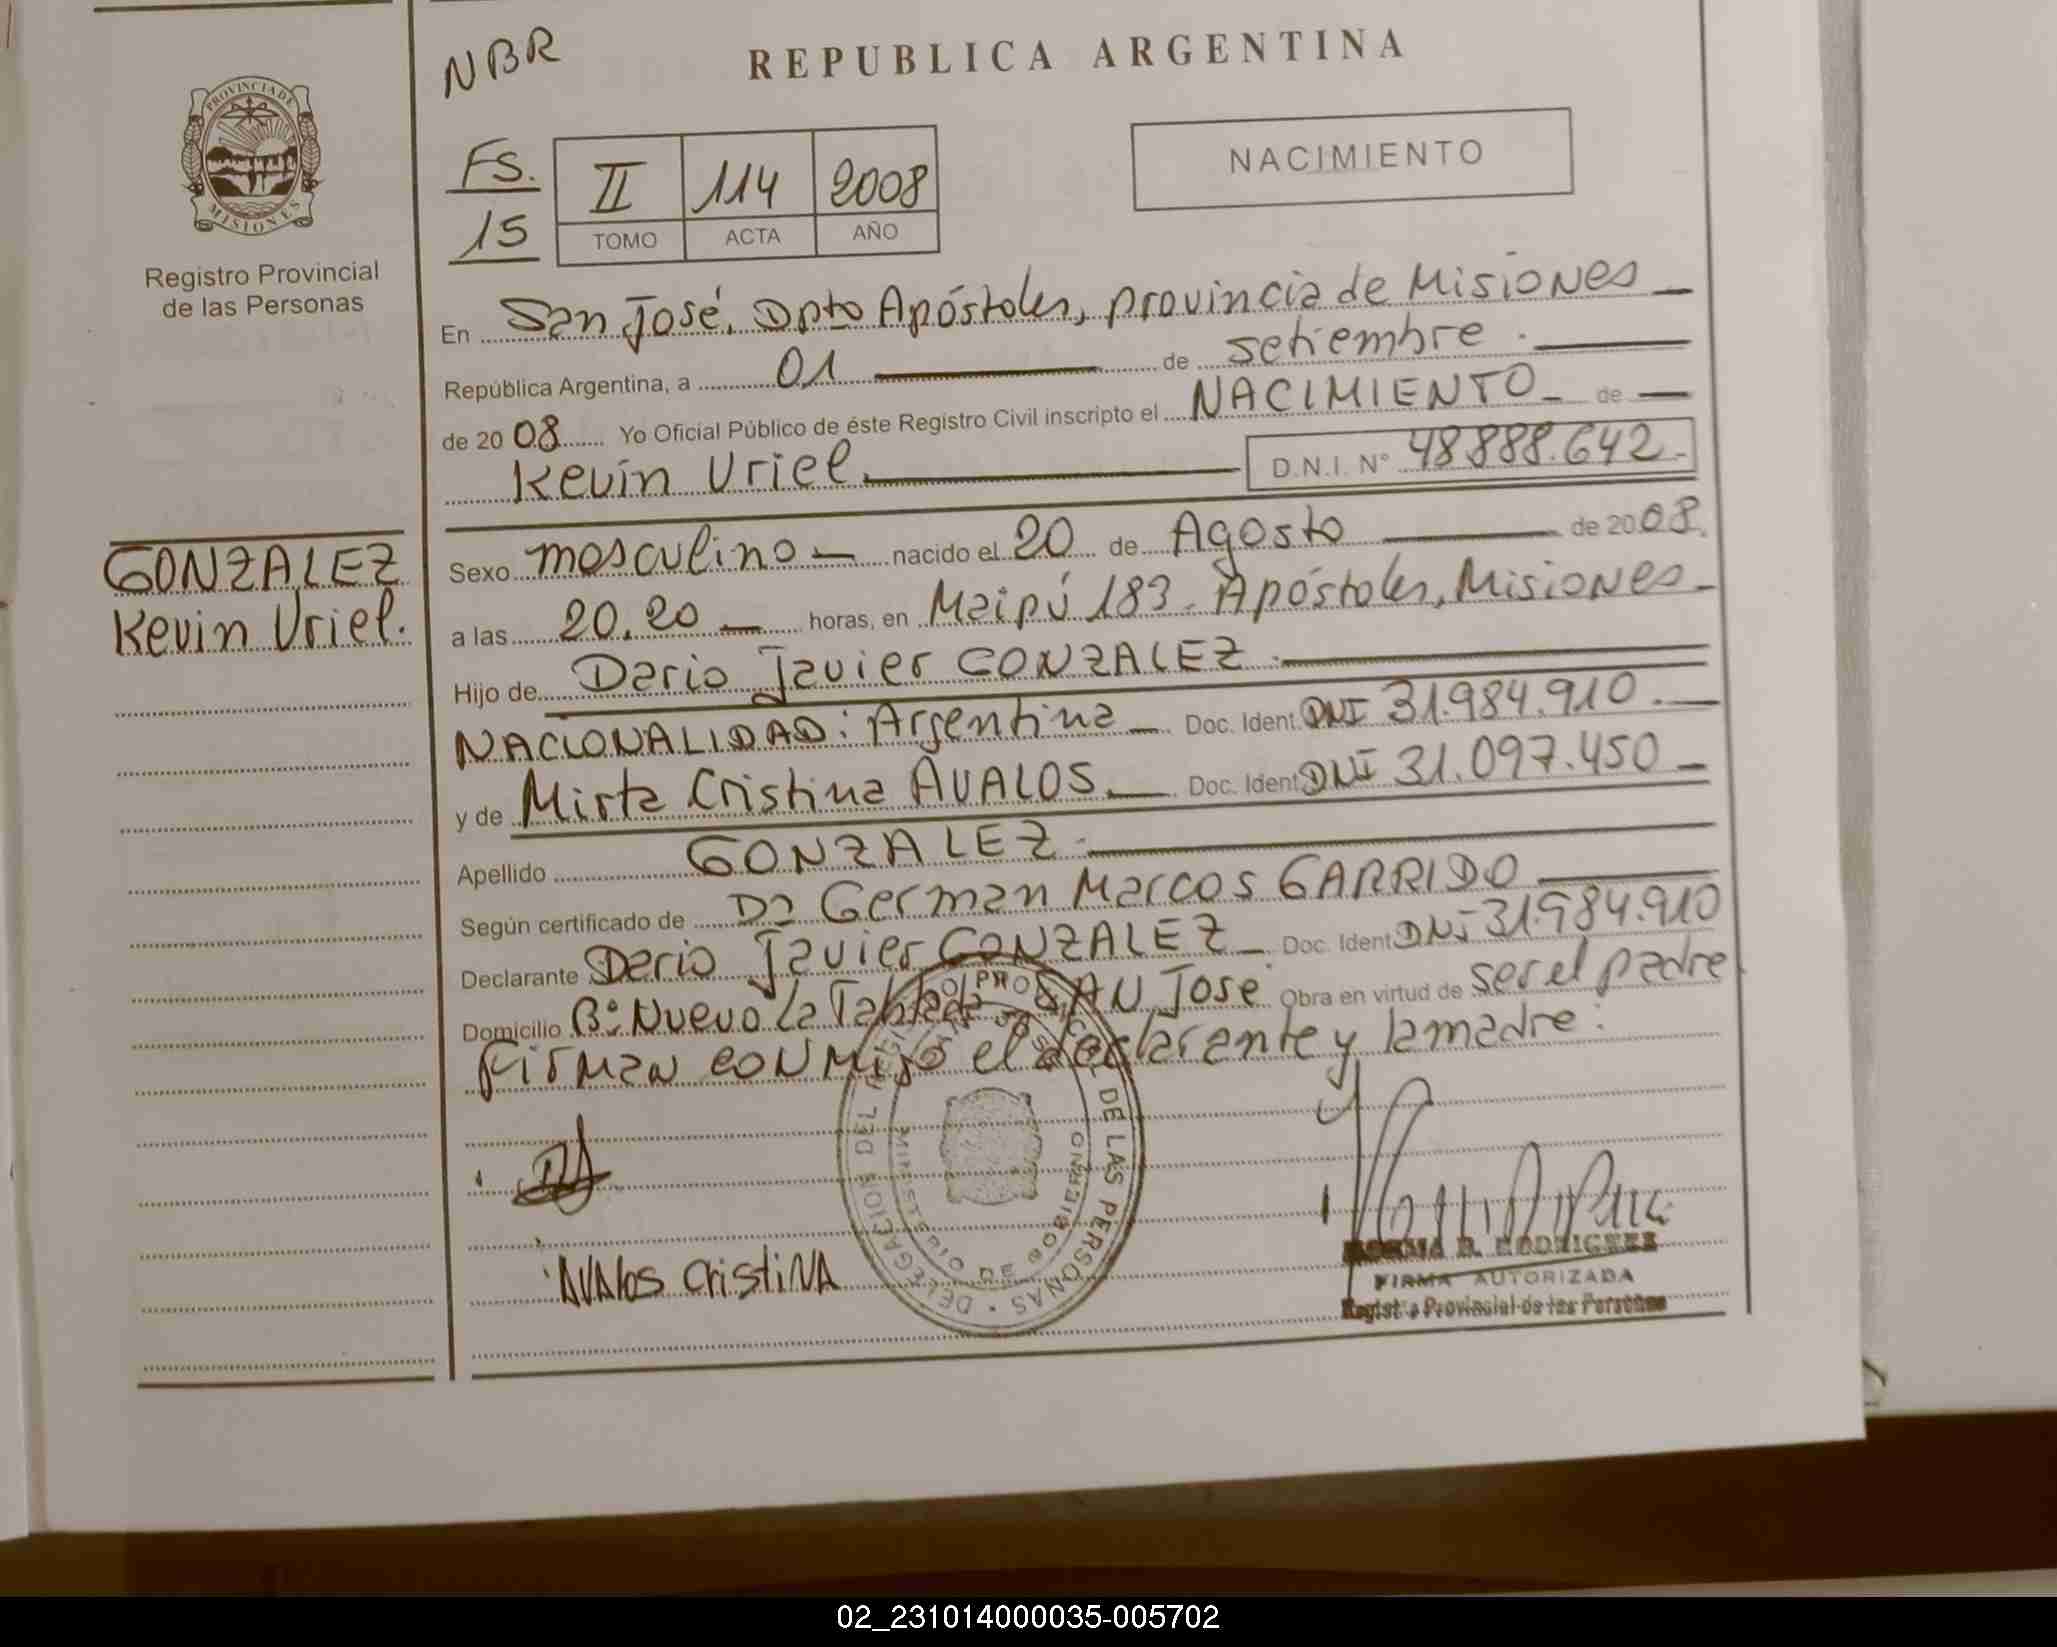 NBR
REPUBLICA ARGENTINA
PROVINCIA DE
MISIONES
Registro Provincial
de las Personas
FS.
15
II 114 2008
TOMO ACTA AÑO
NACIMIENTO
En San José, Dpto Apóstoles, provincia de Misiones
República Argentina, a 01 de setiembre
de 2008 Yo Oficial Público de éste Registro Civil inscripto el NACIMIENTO de
Kevin Uriel D.N.I. N° 48888.642
GONZALEZ
Kevin Uriel.
Sexo masculino nacido el 20 de Agosto de 2008.
a las 20.20 horas, en Maipú 183. Apóstoles, Misiones
Hijo de Dario Javier GONZALEZ
NACIONALIDAD: Argentina Doc. Ident. DNI 31.984.910.
y de Mirta Cristina AVALOS. Doc. Ident DNI 31.097.450
Apellido GONZALEZ
Según certificado de Dr German Marcos GARRIDO
Declarante Dario Javier GONZALEZ Doc. Ident DNI 31.984.910
Domicilio B° Nuevo La Tablada SAN José Obra en virtud de ser el padre
Firman conmigo el declarante y la madre:
DELEGACION DEL DE LAS PERSONAS
MINISTERIO DE GOBIERNO
AVAlos CristiNA
NORMA B. RODRIGUEZ
FIRMA AUTORIZADA
Registro Provincial de las Personas
02_231014000035-005702